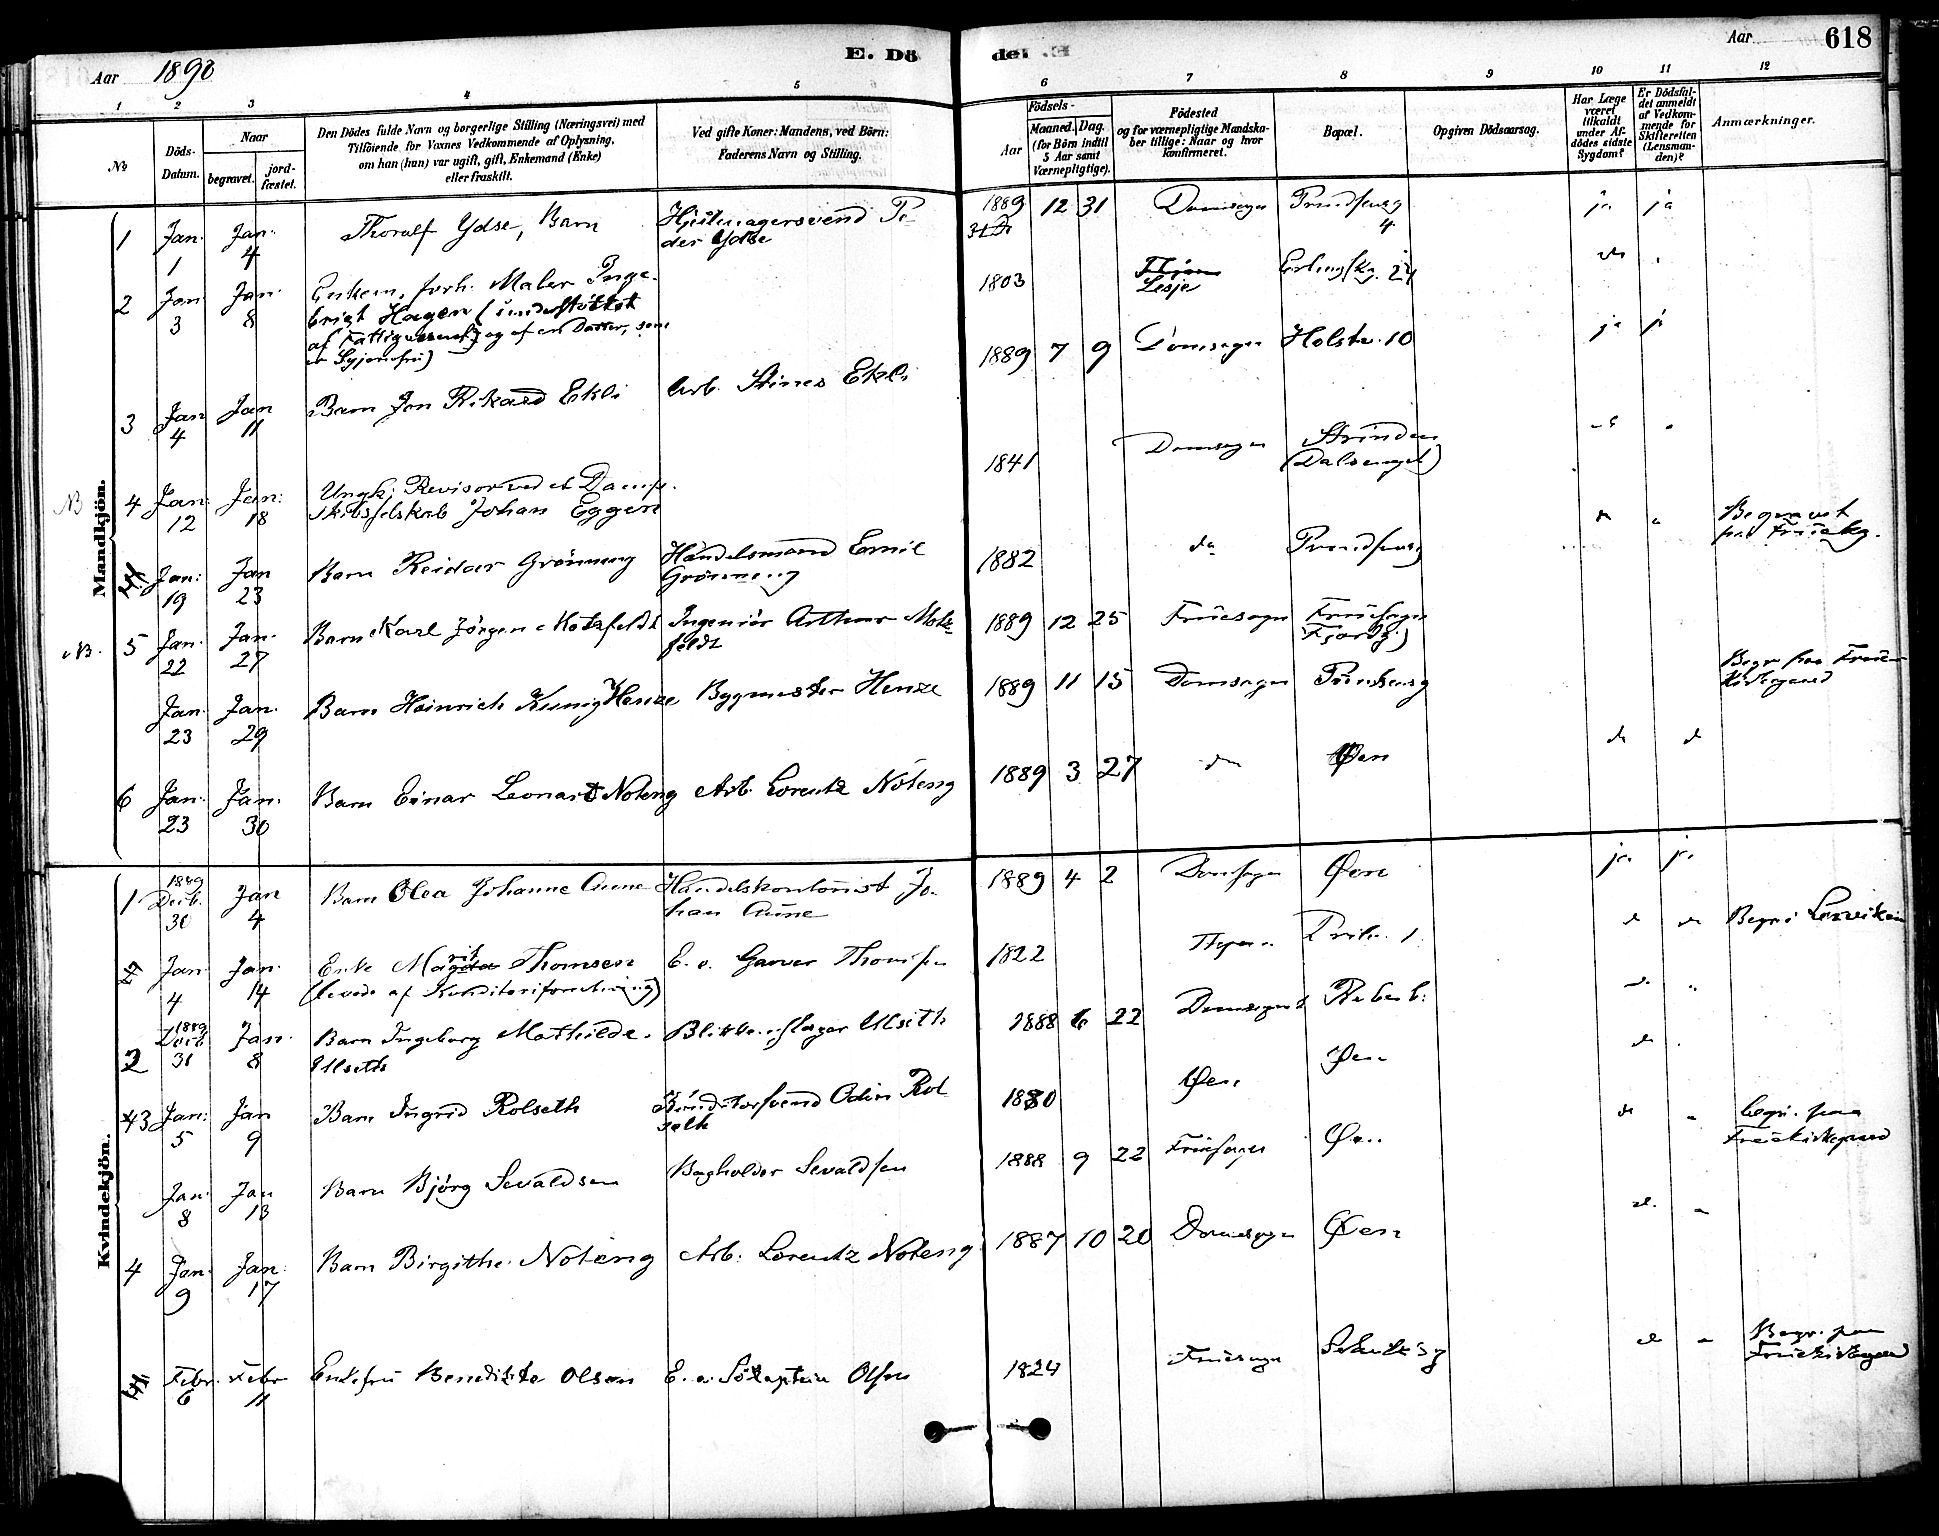 Aar 1890
E. Dö
del
Aar
618
1 2 3 4 5 6 7 8 9 10 11 12
No
Döds-Datum.
Naar
begravet.
jord-fæstet.
Den Dödes fulde Navn og borgerlige Stilling (Næringsvei) med
Tilföiende, for Voxnes Vedkommende af Oplysning,
om han (hun) var ugift, gift, Enkemand (Enke)
eller fraskilt.
Ved gifte Koner: Mandens, ved Börn:
Faderens Navn og Stilling.
Födsels-
Aar
Maaned. Dag.
(for Börn indtil
5 Aar samt
Værnepligtige).
Födested
og for værnepligtige Mandska-
ber tillige: Naar og hvor
konfirmeret.
Bopæl.
Opgiven Dödsaarsag.
Har Læge
været
tilkaldt
under Af-
dödes sidste
Sygdom?
Er Dödsfal-
det anmeldt
af Vedkom-
mende for
Skifteretten
(Lensman-
den)?
Anmærkninger.
Mandkjön.
1 Jan. 1 Jan. 4 Thoralf Ydse, Barn Hjulmagersvend Pe-
der Ydse 1889 12 31 Domsogn 4 ja ja
2 Jan 3 Jan. 8 Enkem. forh. Maler Inge-
brigt Hagen (understöttet
af Fattigvesenet) og af en Datter, som
er Syjomfru) 1803 Lesje Erlingsk g. 24 do
3 Jan 4 Jan 11 Barn Jon Rikard Ekli Arb. Ekli 1889 7 9 Domsogn Holstv. 10 ja ja
NB 4 Jan. 12 Jan: 18 Ungk. Revisor ved et Damp-
skibsselskab Johan Eggen 1841 Domsogn Strinden
(Dalsenget)
Jan: 19 Jan 23 Barn Reidar Grönning Handelsmand Emil
Grönning 1882 do Begravet
paa Fruekg.
NB. 5 Jan. 22 Jan. 27 Barn Karl Jörgen Motzfeldt Ingeniör Arthur Motz-
feldt 1889 12 25 Fruesogn Fruesogn
Jan. 23 Jan. 29 Barn Heinrich Henze Bygmester Henze 1889 11 15 Domsogn Begr paa Frue
Kirkegaard
6 Jan. 23 Jan. 30 Barn Einar Leonard Noteng Arb. Lorentz Noteng 1889 3 27 do Øen do do
Kvindekjön.
1 1889 Decb. 30 Jan 4 Barn Olea Johanne Aune Handelskontorist Jo-
han Aune 1889 4 2 Domsogn Øen ja ja
Jan 4 Jan. 14 Enke Marit Thomsen E. e. Garver Thomsen 1822 1 do do
2 1889 Decb 31 Jan. 8 Barn Ingeborg Mathilde
Ulseth Ulseth 1888 6 22 Domsogn do
3 Jan: 5 Jan 9 Barn Ingrid Rolseth Konditorsvend Odin Rol-
seth 1880 Øen Øen do
Jan. 8 Jan 13 Barn Björg Sevaldsen Bogholder Sevaldsen 1888 9 22 Fruesogn Øen do begr. paa
Fruekirkegaard
4 Jan. 9 Jan: 17 Barn Birgithe Noteng Arb. Lorentz Noteng 1887 10 20 Domsogn Øen do
Febr. 6 Febr 11 Enkefru Benedikte Olsen E. e. Skibskaptein Olsen 1824 Fruesogn do Begr. paa
Fruekirkegaard